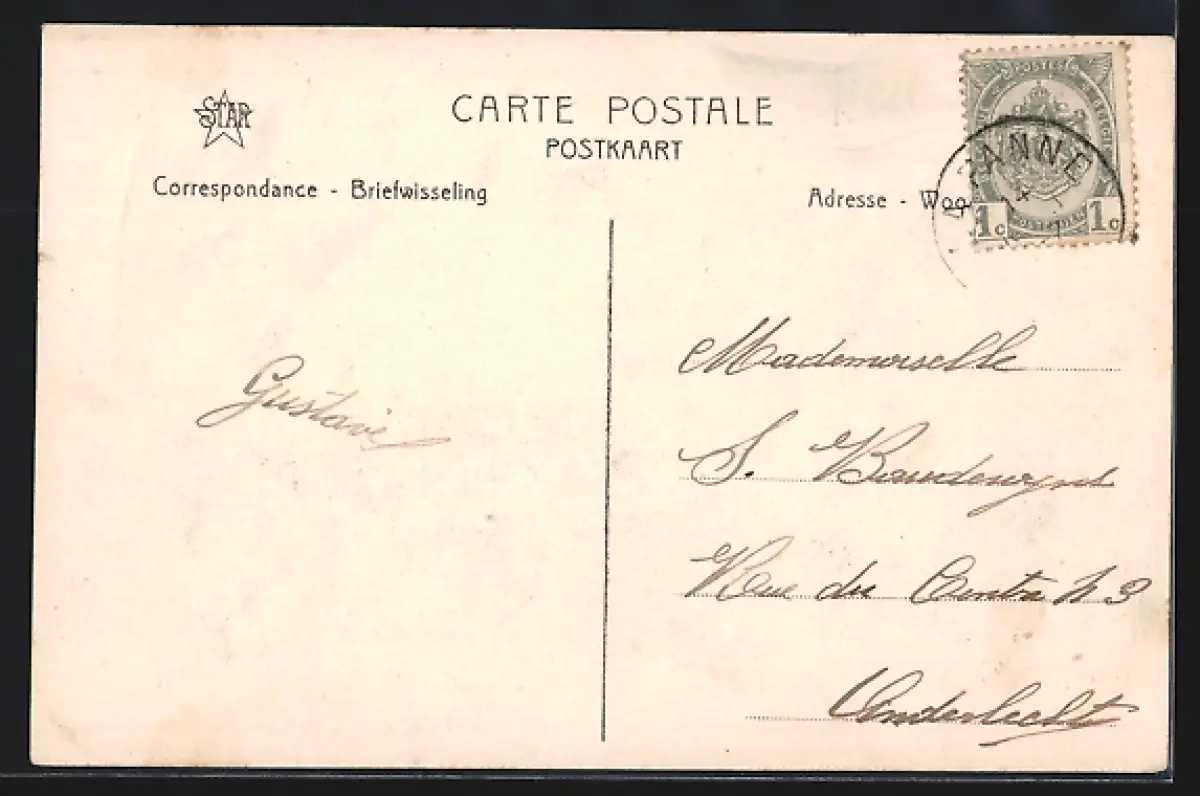 STAR
CARTE POSTALE
POSTKAART
Correspondance - Briefwisseling
Adresse - Woo
POSTES
1c 1c
ANNE
Gustave
Mademoiselle
S. Baudewyns
Rue du Centre
Anderlecht